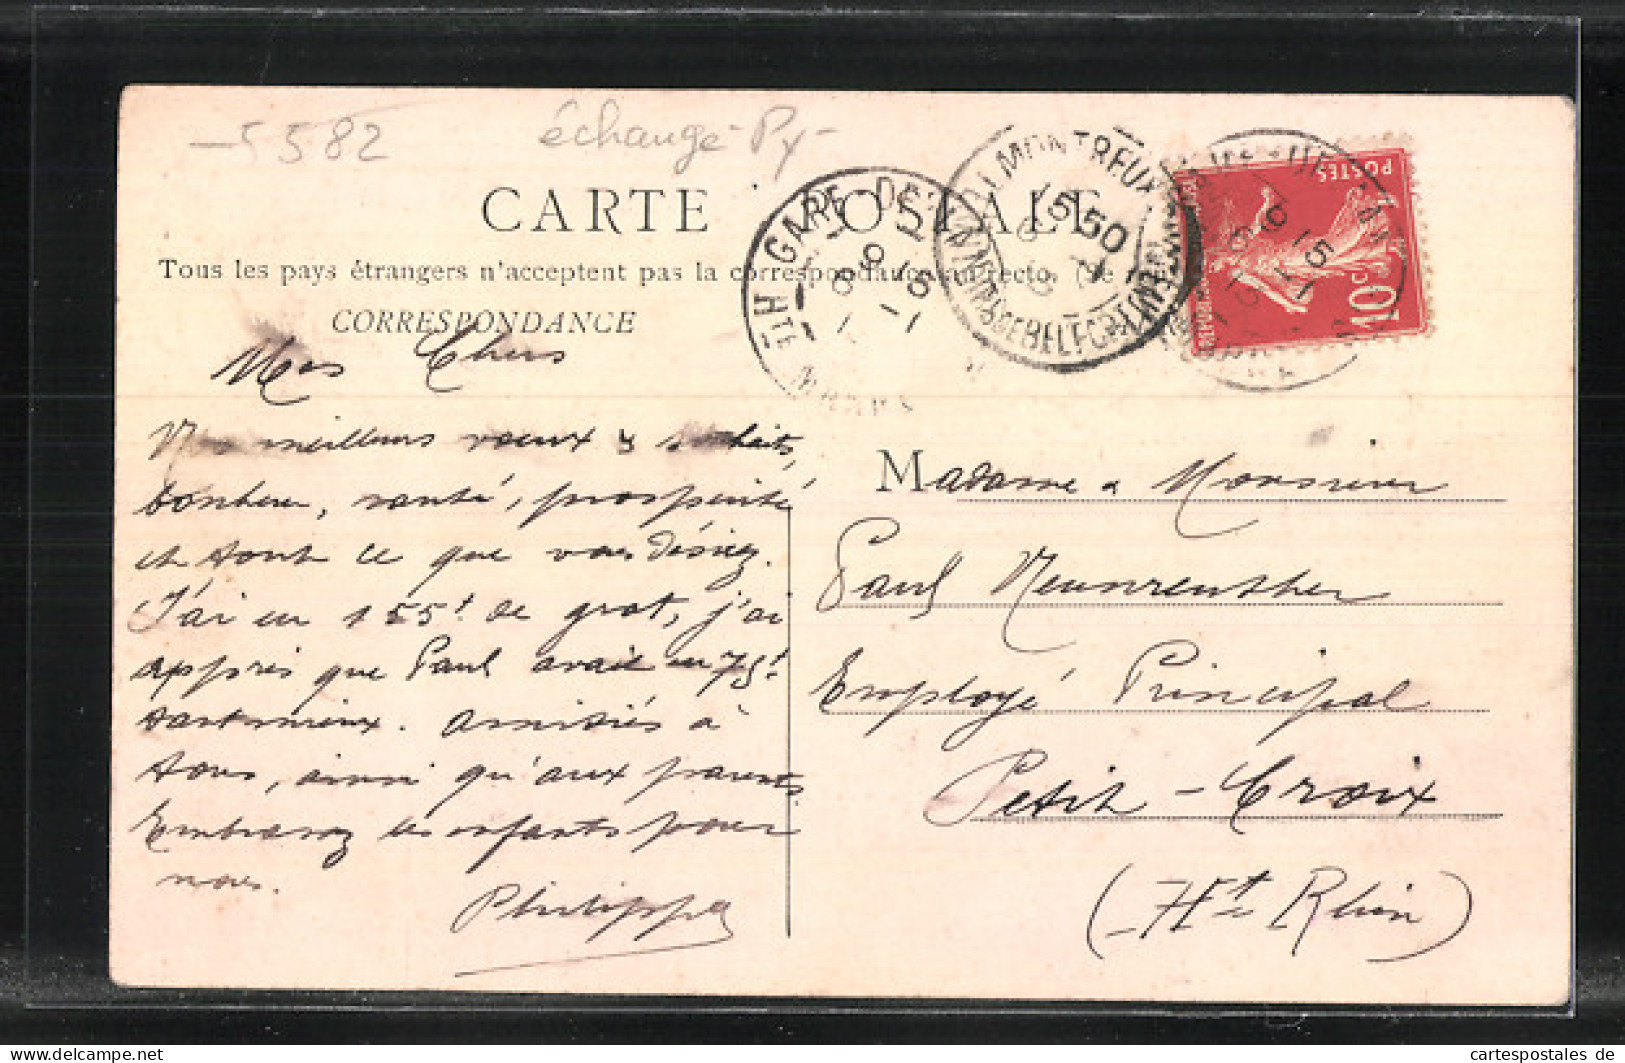 -5582
échangé Px-
CARTE POSTALE
Tous les pays étrangers n'acceptent pas la correspondance au recto. (Se
CORRESPONDANCE
Mes Chers
meilleurs voeux & souhaits,
bonheur, santé, prospérité
et tout ce que vous désirez.
J'ai eu 155f de grat, j'ai
appris que Paul avait eu 75f
tant mieux. Amitiés à
tous, ainsi qu'aux parents
Embrassez les enfants pour
nous.
Philippe
GARE DE
Hte MARNE
MONTREUX
15 50
POSTES
10c
Madame & Monsieur
Paul Neunreuther
Employé Principal
Petit-Croix
(Ht Rhin)
cartespostales de